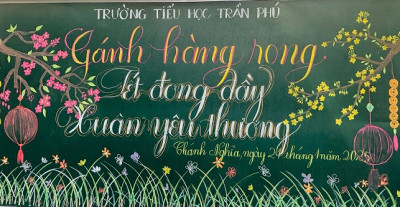 TRƯỜNG TIỂU HỌC TRẦN PHÚ
Gánh hàng rong
Tết đong đầy
Xuân yêu thương
Chánh Nghĩa, ngày 24 tháng 1 năm 2025